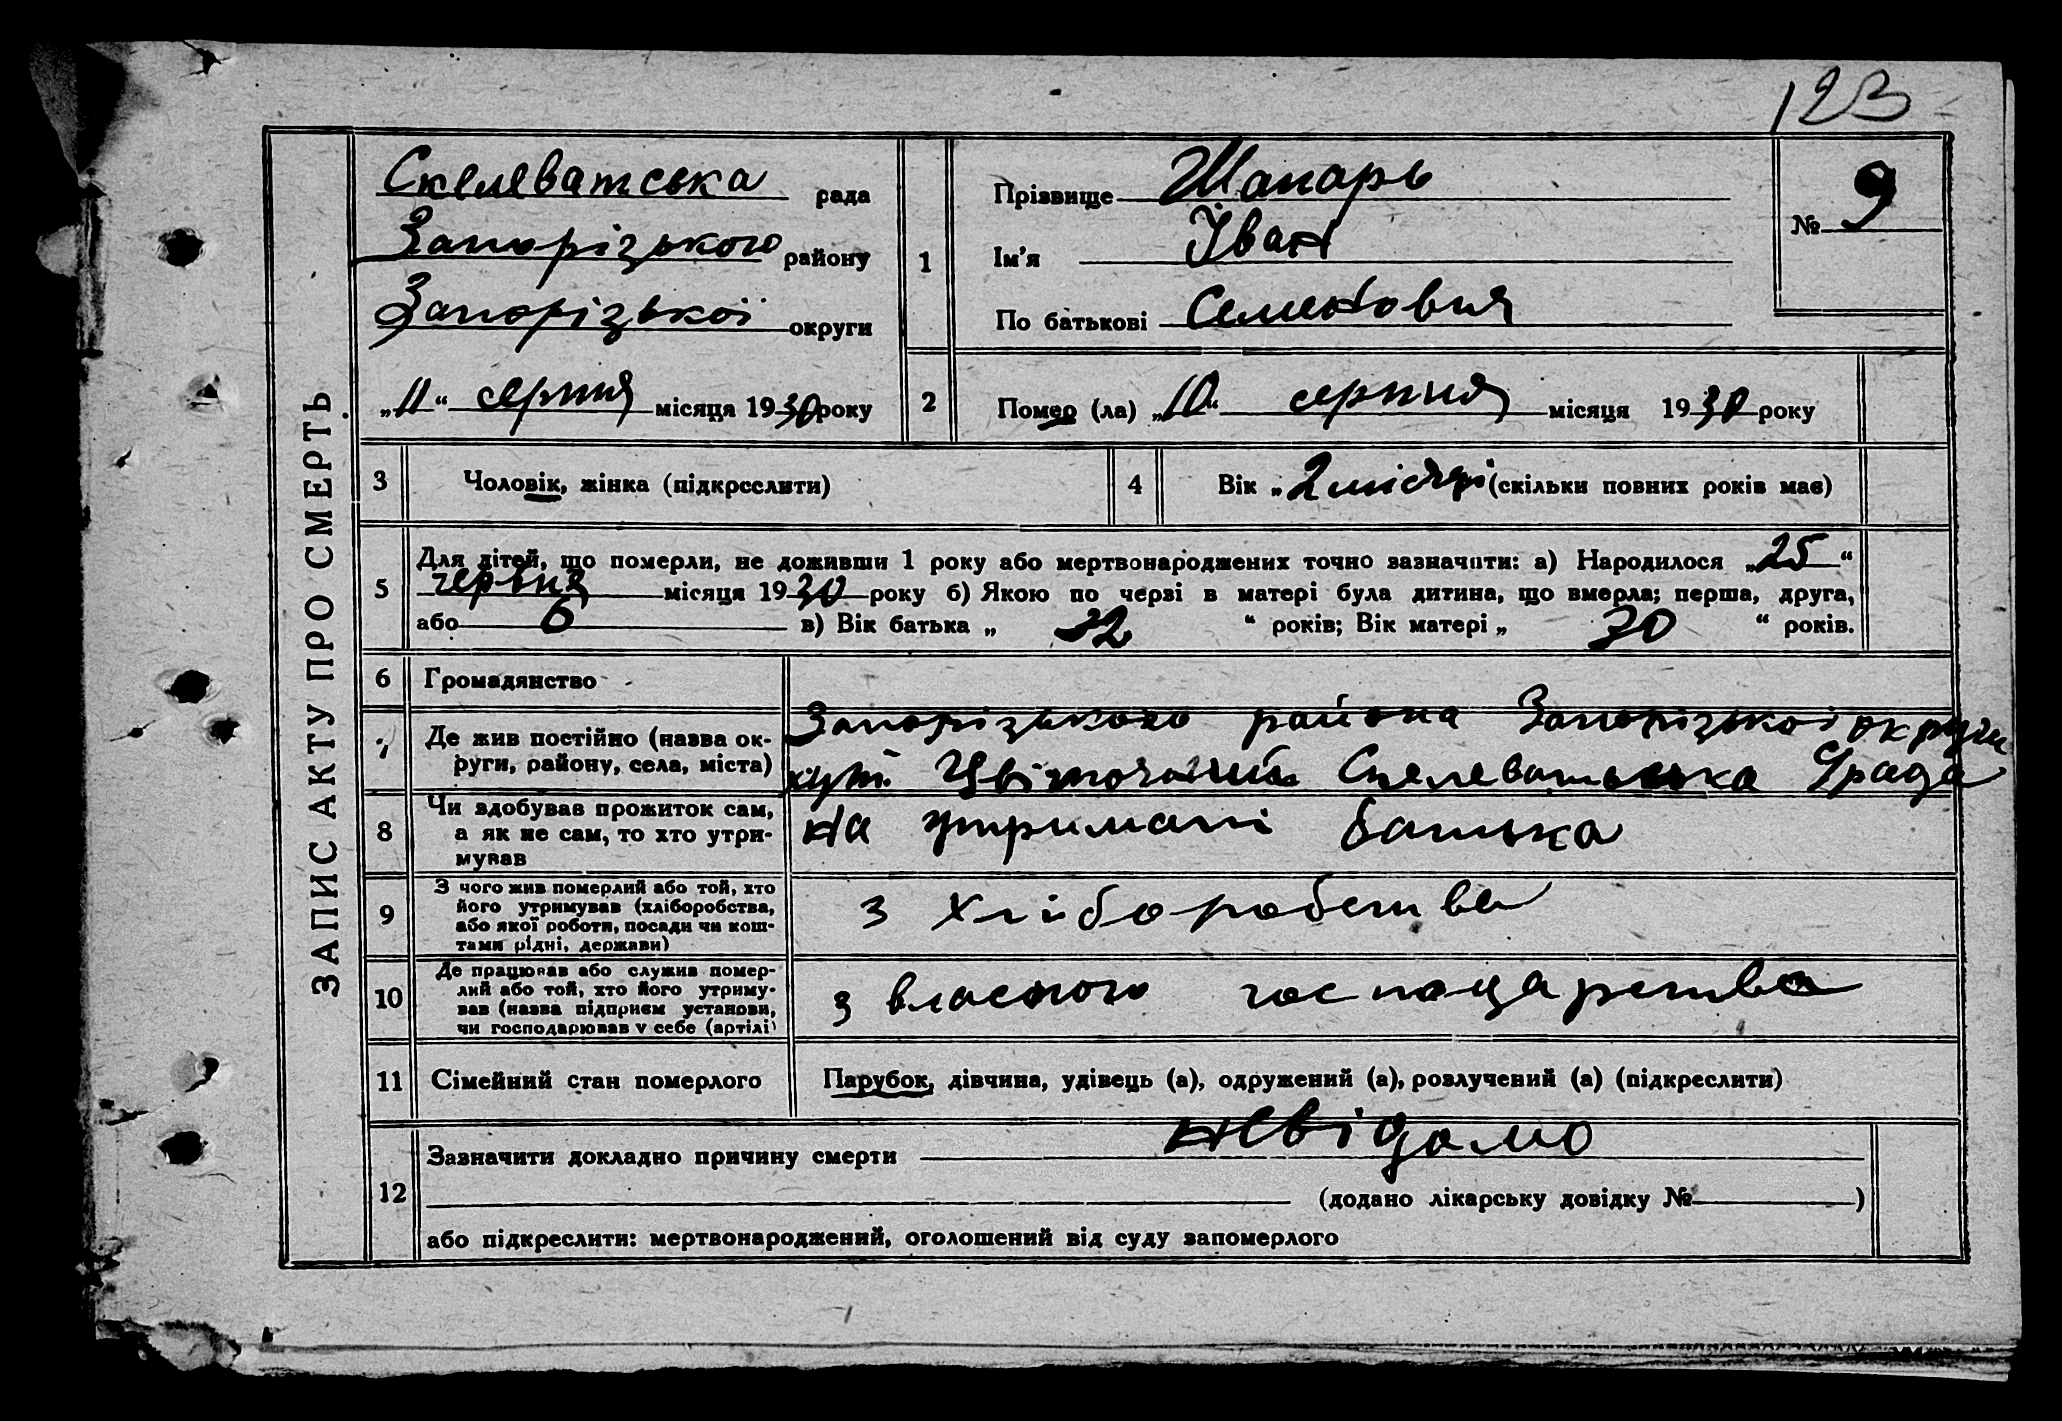 123
ЗАПИС АКТУ ПРО СМЕРТЬ
Скелеватська рада
Запорізького району
Запорізької округи
„11“ серпня місяця 1930 року
1
Прізвище Шапарь
Ім'я Іван
По батькові Семенович
№ 9
2
Помер (ла) „10“ серпня місяця 1930 року
3 Чоловік, жінка (підкреслити)
4 Вік „2 місяці“ (скільки повних років має)
5
Для дітей, що померли, не доживши 1 року або мертвонароджених точно зазначити: а) Народилося „25“
червня місяця 1930 року б) Якою по черзі в матері була дитина, що вмерла; перша, друга,
або 6 в) Вік батька „ 32 “ років; Вік матері „ 30 “ років.
6 Громадянство
7 Де жив постійно (назва ок-
руги, району, села, міста)
Запорізького района Запорізької округи
хут. Цвіточний Скелеватська рада
8 Чи здобував прожиток сам,
а як не сам, то хто утри-
мував
на утримані батька
9 З чого жив померлий або той, хто
його утримував (хліборобства,
або якої роботи, посади чи кош-
тами рідні, держави)
з хліборобства
10 Де працював або служив помер-
лий або той, хто його утриму-
вав (назва підприєм установи,
чи господарював у себе (артілі)
з власного господарства
11 Сімейний стан померлого
Парубок, дівчина, удівець (а), одружений (а), розлучений (а) (підкреслити)
12
Зазначити докладно причину смерти невідомо
(додано лікарську довідку № )
або підкреслити: мертвонароджений, оголошений від суду запомерлого